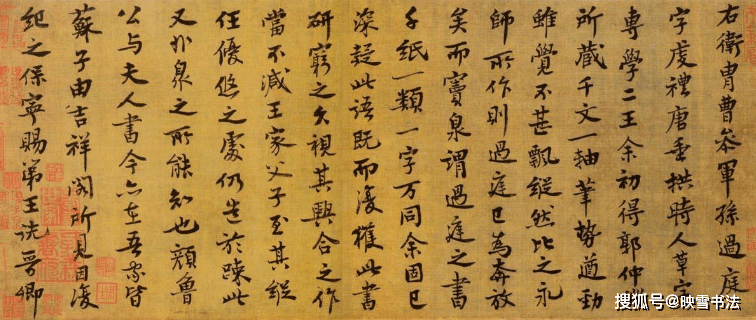 右衛胄曹參軍孫過庭
字虔禮唐垂拱時人草字
專學二王余初得郭仲微
所藏千文一軸筆勢遒勁
雖覺不甚飄縱然比之永
師所作則過庭已為奔放
矣而竇泉謂過庭之書
千紙一類一字万同余固已
深疑此語既而復獲此書
研窮之久視其興合之作
當不減王家父子至其縱
任優悠之處仍造於疎此
又非泉之所能知也顏魯
公与夫人書今亦在吾家皆
蘇子由吉祥閣所見因復
紀之保寧賜第王詵晉卿
搜狐号@映雪书法